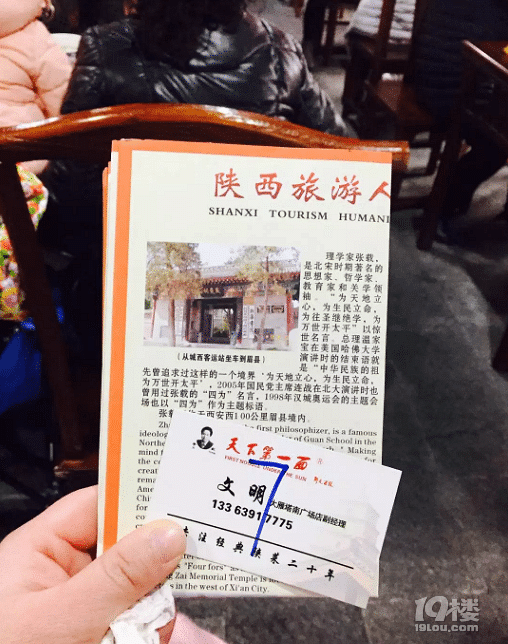 陕西旅游人
SHANXI TOURISM HUMANI
理学家张载，
是北宋时期著名的
思想家、哲学家、
教育家和关学领
袖。“为天地立
心，为生民立命，
为往圣继绝学，为
万世开太平”以惊
世名言。总理温家
宝在美国哈佛大学
演讲时的结束语就
是“中华民族的祖
（从城西客运站坐车到眉县）
先曾追求过这样的一个境界‘为天地立心，为生民立命，
为万世开太平’，2005年国民党主席连战在北大演讲时也
曾用过张载的“四为”名言，1998年汉城奥运会的主题会
场也以“四为”作为主题标语。
张载 天西安西100公里眉县境内。
first philosophizer, is a famous
ideolog of Guan School in the
Northe Making
mind f for
the co
creat
rema
Ame
Chi
for
com
wor
天下第一面
FIRST NOODLE UNDER THE SUN
7
文明
大雁塔南广场店副经理
133 6391 7775
专注经典陕菜二十年
"Four fors" as
Zai Memorial Temple is
in the west of Xi'an City.
19楼
19lou.com